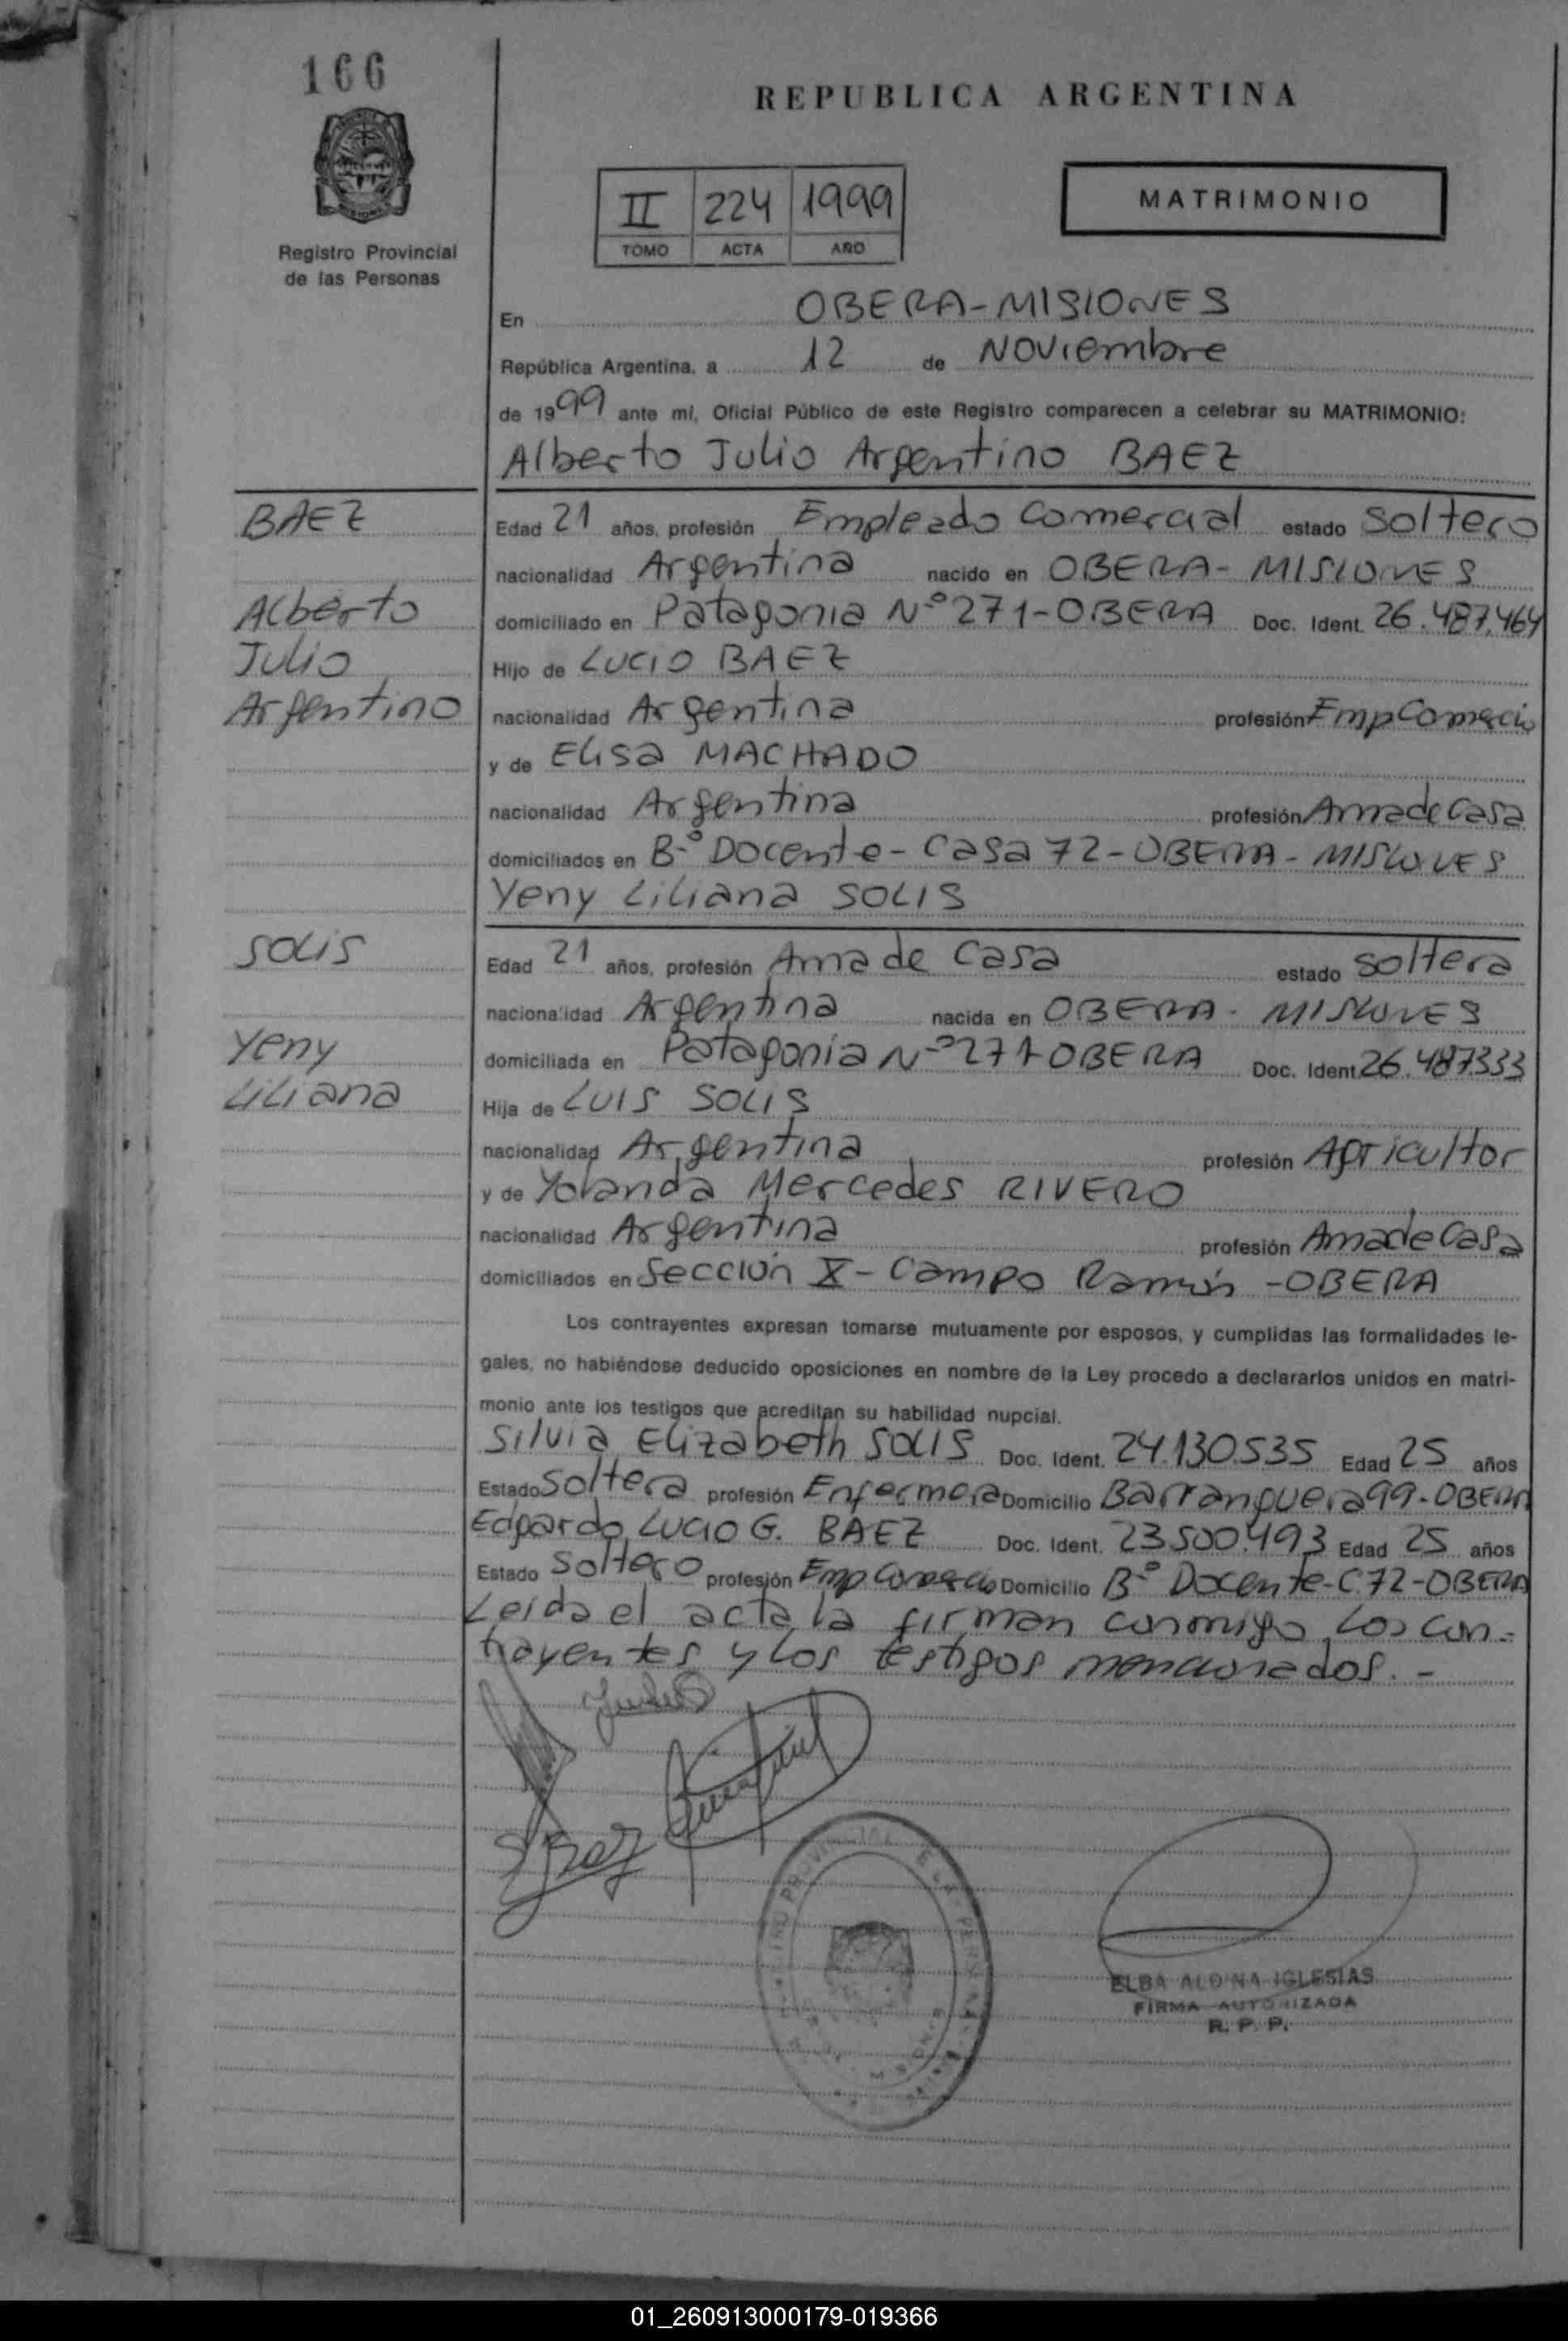 166
REPUBLICA ARGENTINA
II 224 1999
TOMO ACTA AÑO
MATRIMONIO
Registro Provincial
de las Personas
En OBERA-MISIONES
República Argentina, a 12 de Noviembre
de 1999 ante mí, Oficial Público de este Registro comparecen a celebrar su MATRIMONIO:
Alberto Julio Argentino BAEZ
BAEZ
Edad 21 años, profesión Empleado Comercial estado soltero
nacionalidad Argentina nacido en OBERA- MISIONES
Alberto
domiciliado en Patagonia Nº 271-OBERA Doc. Ident. 26.487.464
Julio
Hijo de LUCIO BAEZ
Argentino
nacionalidad Argentina profesión Emp Comercio
y de Elisa MACHADO
nacionalidad Argentina profesión Ama de Casa
domiciliados en Bº Docente- Casa 72-OBERA- MISIONES
Yeny Liliana SOLIS
SOLIS
Edad 21 años, profesión Ama de Casa estado soltera
nacionalidad Argentina nacida en OBERA- MISIONES
Yeny
domiciliada en Patagonia Nº 271-OBERA Doc. Ident. 26.487.333
Liliana
Hija de LUIS SOLIS
nacionalidad Argentina profesión Agricultor
y de Yolanda Mercedes RIVERO
nacionalidad Argentina profesión Ama de Casa
domiciliados en Sección X- Campo Ramón -OBERA
Los contrayentes expresan tomarse mutuamente por esposos, y cumplidas las formalidades le-
gales, no habiéndose deducido oposiciones en nombre de la Ley procedo a declararlos unidos en matri-
monio ante los testigos que acreditan su habilidad nupcial.
Silvia Elizabeth SOLIS Doc. Ident. 24.130.535 Edad 25 años
Estado Soltera profesión Enfermera Domicilio Barranquera 99-OBERA
Edgardo Lucio G. BAEZ Doc. Ident. 23.500.493 Edad 25 años
Estado Soltero profesión Emp Comercio Domicilio Bº Docente-C.72-OBERA
Leida el acta la firman conmigo, los con-
trayentes y los testigos mencionados.-
ELBA ALDINA IGLESIAS
FIRMA AUTORIZADA
R. P. P.
01_260913000179-019366